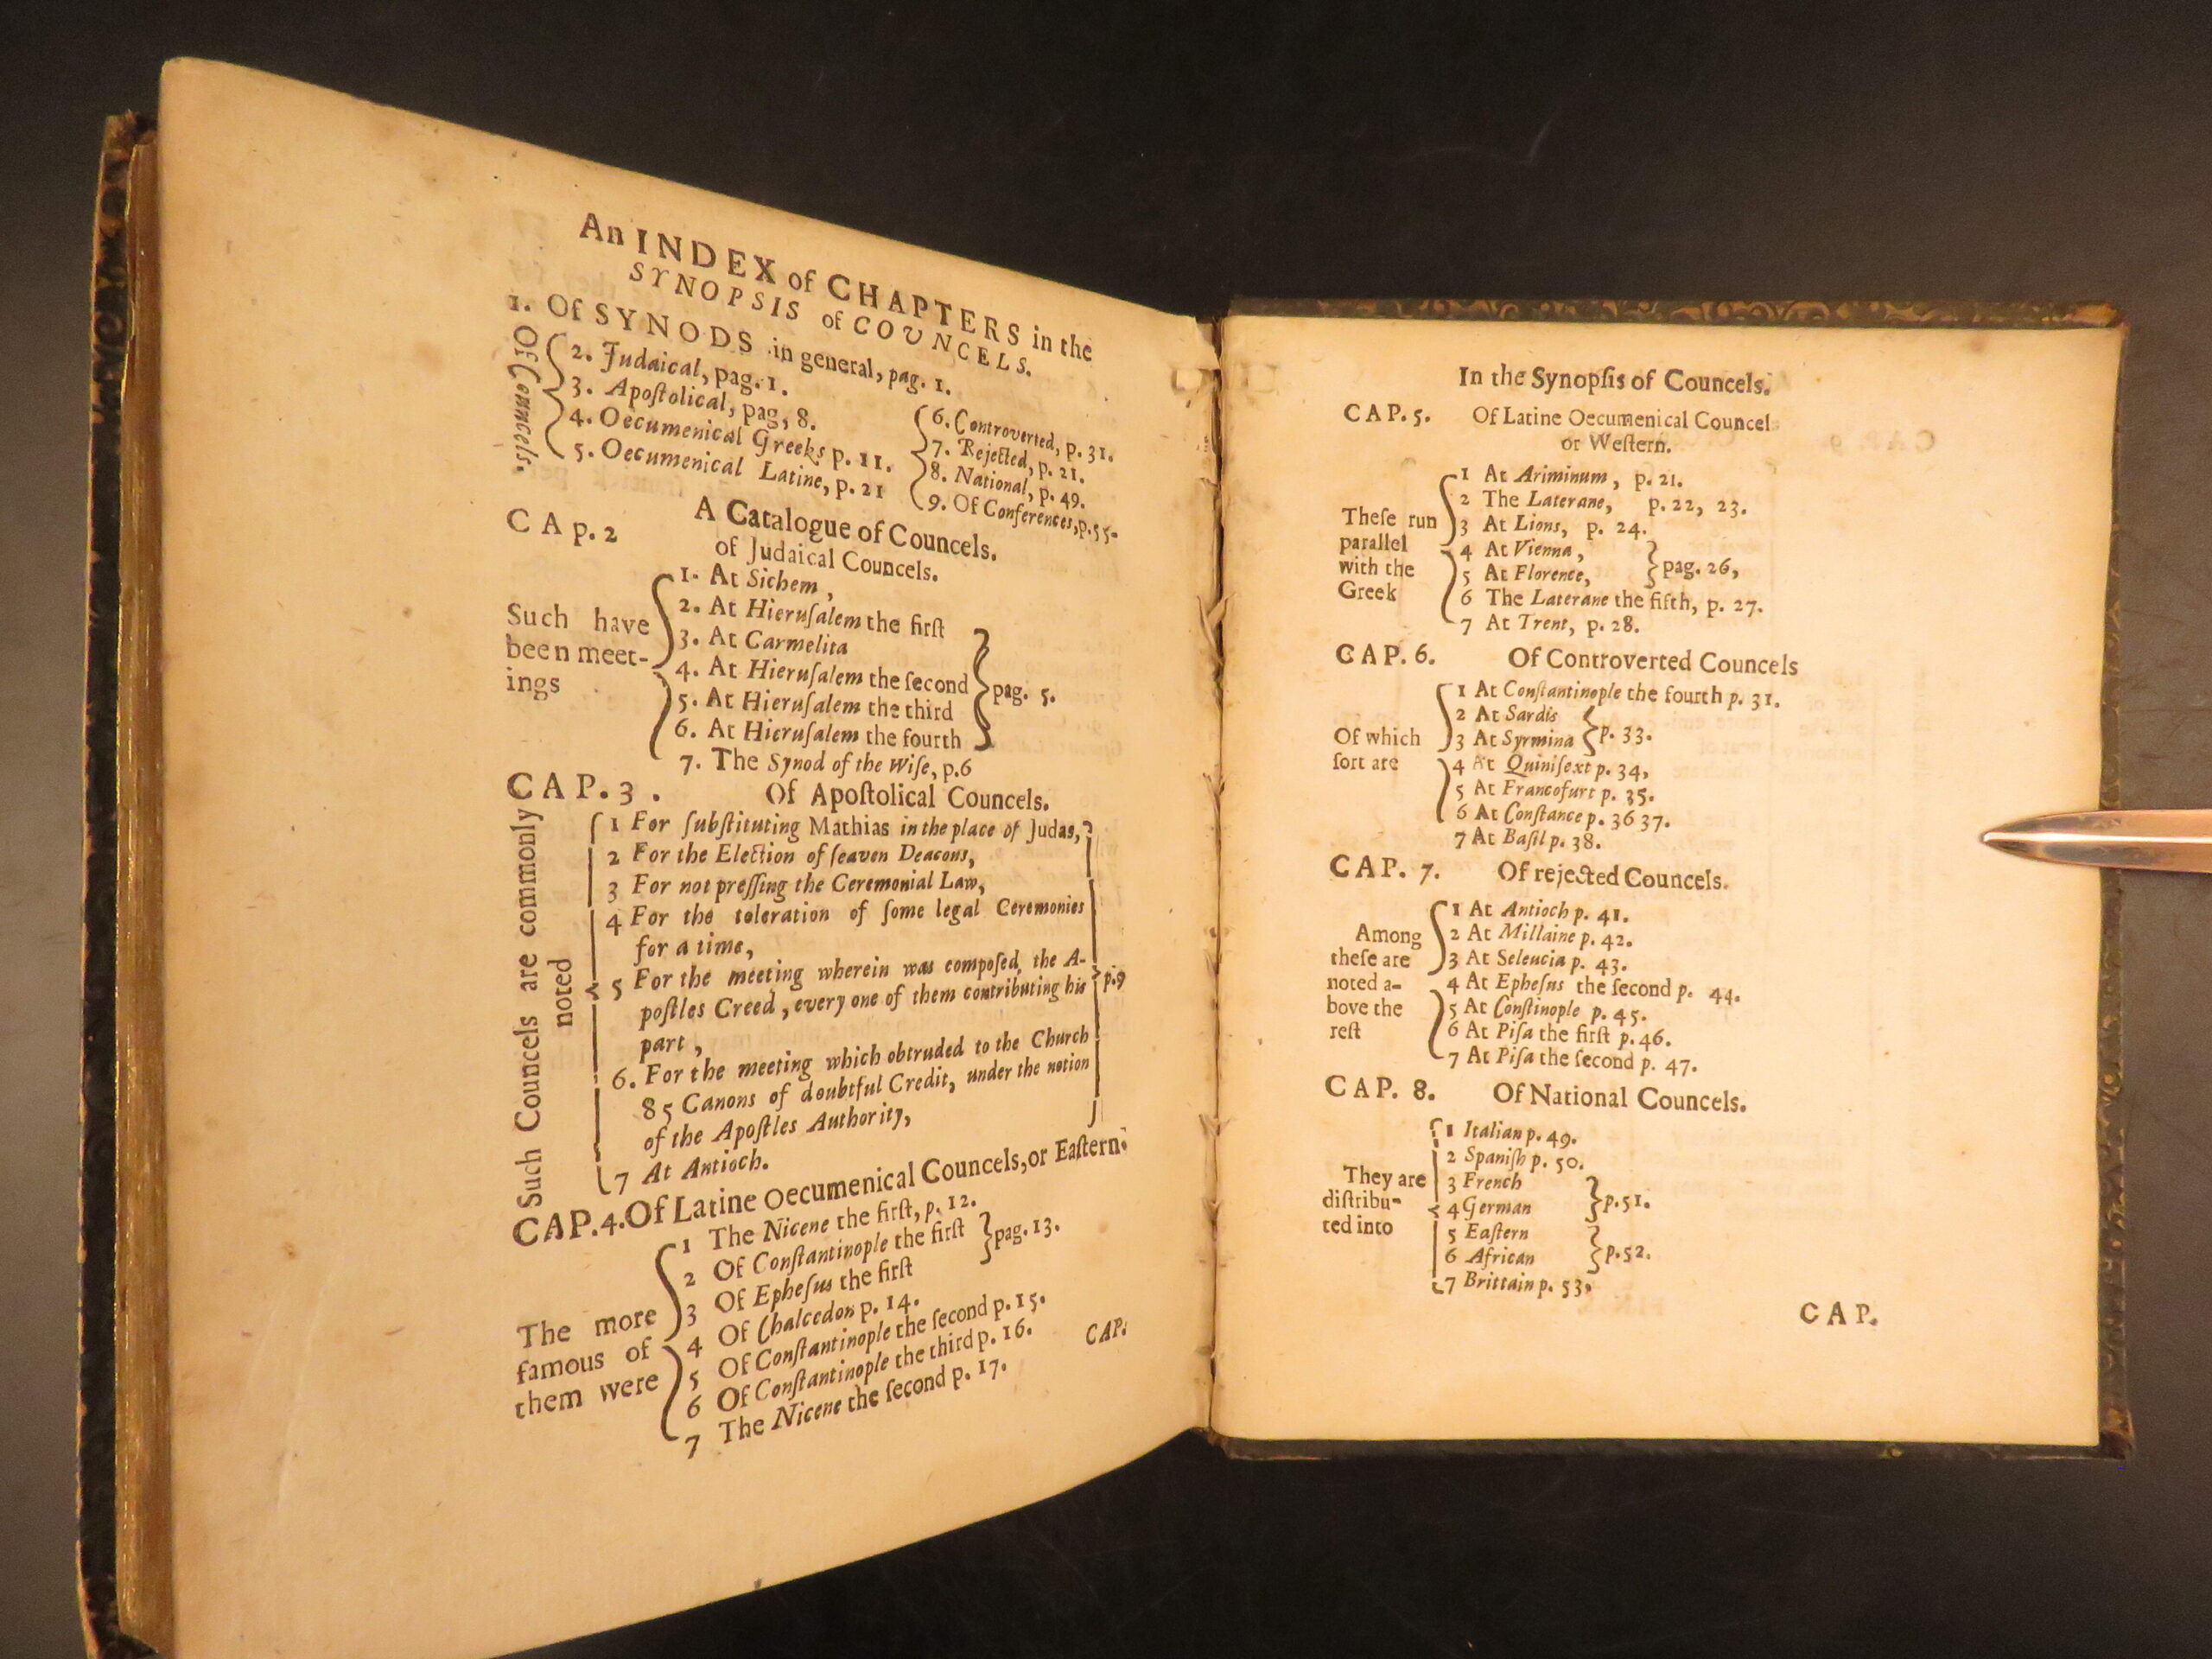 An INDEX of CHAPTERS in the
SYNOPSIS of COUNCELS.
1. Of SYNODS in general, pag. 1.
Of Councels.
2. Judaical, pag. 1.
3. Apoſtolical, pag, 8.
4. Oecumenical Greeks p. 11.
5. Oecumenical Latine, p. 21
6. Controverted, p. 31.
7. Rejected, p. 21.
8. National, p. 49.
9. Of Conferences, p. 55.
CAp. 2 A Catalogue of Councels.
of Judaical Councels.
Such have
been meet-
ings
1. At Sichem,
2. At Hieruſalem the firſt
3. At Carmelita
4. At Hieruſalem the ſecond
5. At Hieruſalem the third
6. At Hieruſalem the fourth
pag. 5.
7. The Synod of the Wiſe, p.6
CAP. 3. Of Apoſtolical Councels.
Such Councels are commonly
noted
1 For ſubſtituting Mathias in the place of Judas,
2 For the Election of ſeaven Deacons,
3 For not preſſing the Ceremonial Law,
4 For the toleration of ſome legal Ceremonies
for a time,
5 For the meeting wherein was compoſed, the A-
poſtles Creed, every one of them contributing his
part,
6. For the meeting which obtruded to the Church
85 Canons of doubtful Credit, under the notion
of the Apoſtles Authority,
7 At Antioch.
p.9
CAP. 4. Of Latine Oecumenical Councels, or Eaſtern.
The more
famous of
them were
1 The Nicene the firſt, p. 12.
2 Of Conſtantinople the firſt
3 Of Epheſus the firſt
pag. 13.
4 Of Chalcedon p. 14.
5 Of Conſtantinople the ſecond p. 15.
6 Of Conſtantinople the third p. 16.
7 The Nicene the ſecond p. 17.
CAP.
In the Synopſis of Councels.
CAP. 5. Of Latine Oecumenical Councel
or Weſtern.
Theſe run
parallel
with the
Greek
1 At Ariminum, p. 21.
2 The Laterane, p. 22, 23.
3 At Lions, p. 24.
4 At Vienna,
5 At Florence,
pag. 26,
6 The Laterane the fifth, p. 27.
7 At Trent, p. 28.
CAP. 6. Of Controverted Councels
Of which
ſort are
1 At Conſtantinople the fourth p. 31.
2 At Sardis
3 At Syrmina
p. 33.
4 At Quiniſext p. 34,
5 At Francofurt p. 35.
6 At Conſtance p. 36 37.
7 At Baſil p. 38.
CAP. 7. Of rejected Councels.
Among
theſe are
noted a-
bove the
reſt
1 At Antioch p. 41.
2 At Millaine p. 42.
3 At Seleucia p. 43.
4 At Epheſus the ſecond p. 44.
5 At Conſtinople p. 45.
6 At Piſa the firſt p. 46.
7 At Piſa the ſecond p. 47.
CAP. 8. Of National Councels.
They are
diſtribu-
ted into
1 Italian p. 49.
2 Spaniſh p. 50.
3 French
4 German
p. 51.
5 Eaſtern
6 African
p. 52.
7 Brittain p. 53,
CAP.